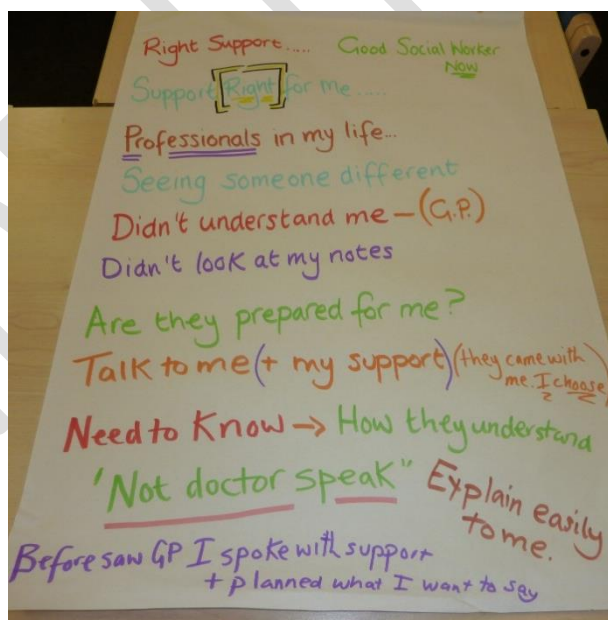 Right Support..... Good Social Worker
Now
Support [Right] for me.....
Professionals in my life...
Seeing someone different
Didn't understand me - (G.P.)
Didn't look at my notes
Are they prepared for me?
Talk to me (+ my support) (they came with
me. I choose)
Need to Know → How they understand
'Not doctor speak"
Explain easily
to me.
Before saw GP I spoke with support
+ planned what I want to say